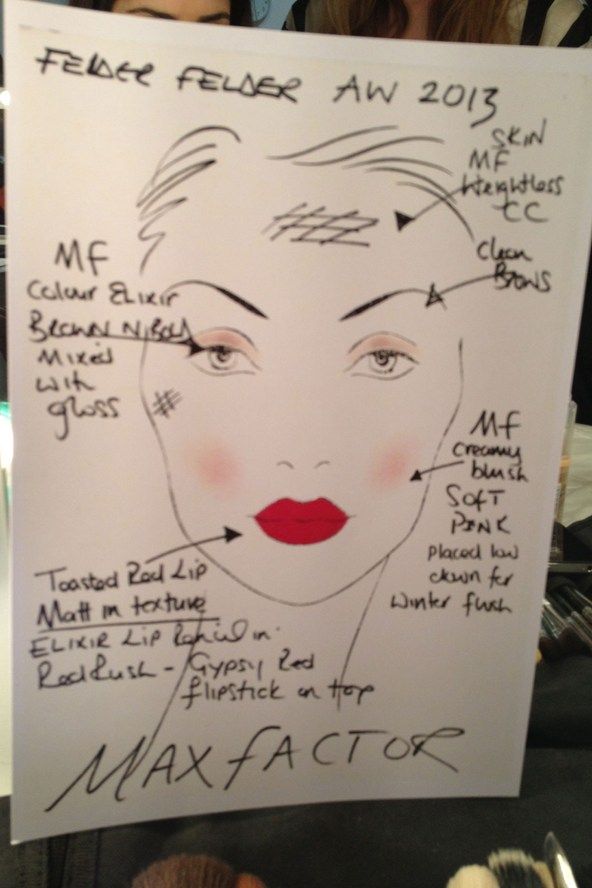 FELDER FELDER AW 2013
SKIN
MF
Weightless
CC
Clean
Brows
MF
Colour Elixir
Brown N Bold
Mixed
with
gloss
MF
creamy
blush
SOFT
PINK
placed low
down for
winter flush
Toasted Red Lip
Matt in texture
ELIXIR LIP Pencil in
Red Rush - Gypsy Red
lipstick on top
MAX FACTOR